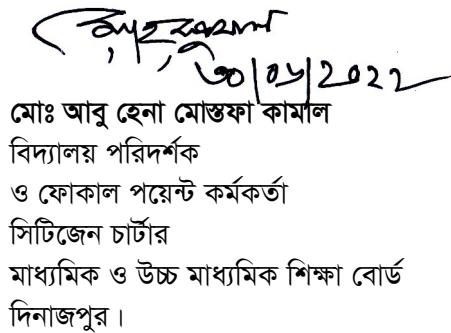 ৩০/০৬/২০২২
মোঃ আবু হেনা মোস্তফা কামাল
বিদ্যালয় পরিদর্শক
ও ফোকাল পয়েন্ট কর্মকর্তা
সিটিজেন চার্টার
মাধ্যমিক ও উচ্চ মাধ্যমিক শিক্ষা বোর্ড
দিনাজপুর।